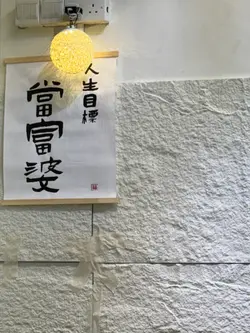 人生目標
當富婆